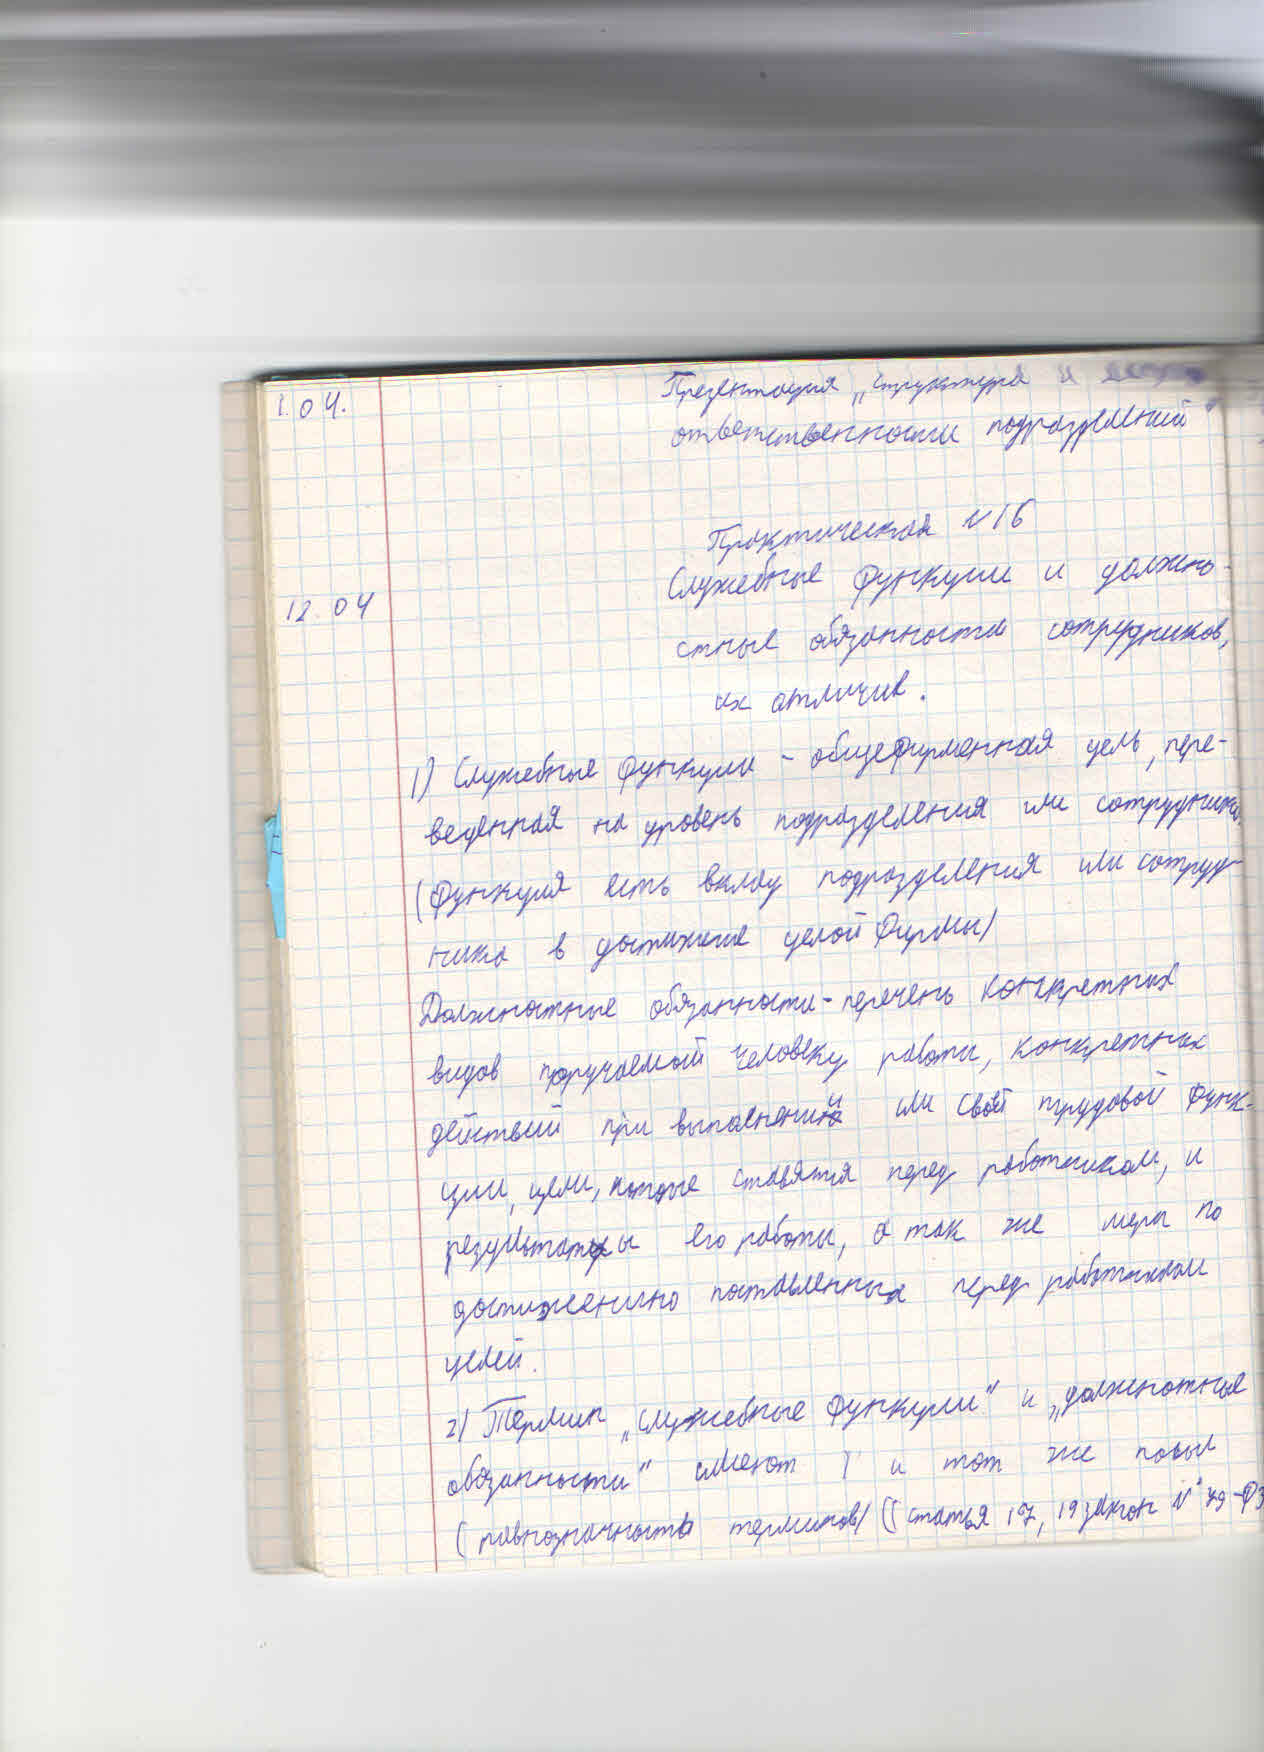 1.04.
Презентация „структура и
ответственности подразделений"
Практическая N 16
12.04
Служебные функции и должно-
стные обязанности сотрудников,
их отличие.
1) Служебные функции - общефирменная цель, пере-
веденная на уровень подразделения или сотрудника.
(функция есть вклад подразделения или сотруд-
ника в достижение целой фирмы)
Должностные обязанности - перечень конкретных
видов поручаемой человеку работы, конкретных
действий при выполнении им своей трудовой функ-
ции, цели, которые ставятся перед работником, и
результаты его работы, а так же меры по
достижению поставленных перед работником
целей.
2) Термин „служебные функции" и „должностные
обязанности" имеют 1 и тот же посыл
(равнозначность терминов) (статья 17, 19 закон N° 79-ФЗ